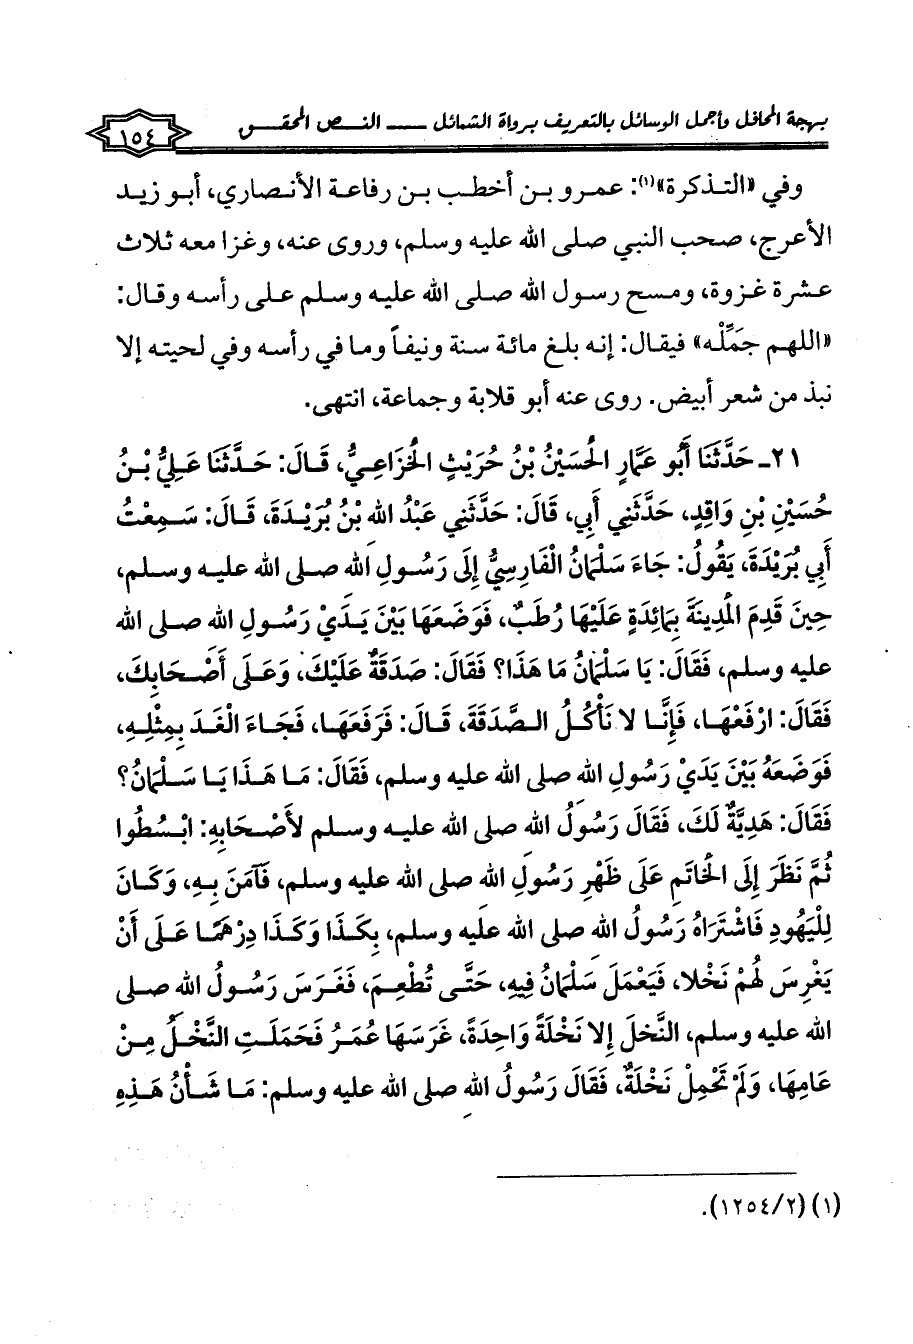 بهجة المحافل وأجمل الوسائل بالتعريف برواة الشمائل ــــ النص المحقق
١٥٤
وفي «التذكرة»(١): عمرو بن أخطب بن رفاعة الأنصاري، أبو زيد
الأعرج، صحب النبي صلى الله عليه وسلم، وروى عنه، وغزا معه ثلاث
عشرة غزوة، ومسح رسول الله صلى الله عليه وسلم على رأسه وقال:
«اللهم جَمِّلْه» فيقال: إنه بلغ مائة سنة ونيفاً وما في رأسه وفي لحيته إلا
نبذ من شعر أبيض. روى عنه أبو قلابة وجماعة، انتهى.
٢١ـ حَدَّثَنَا أَبُو عَمَّارٍ الْحُسَيْنُ بْنُ حُرَيْثٍ الْخُزَاعِيُّ، قَالَ: حَدَّثَنَا عَلِيُّ بْنُ
حُسَيْنِ بْنِ وَاقِدٍ، حَدَّثَنِي أَبِي، قَالَ: حَدَّثَنِي عَبْدُ اللهِ بْنُ بُرَيْدَةَ، قَالَ: سَمِعْتُ
أَبِي بُرَيْدَةَ، يَقُولُ: جَاءَ سَلْمَانُ الْفَارِسِيُّ إِلَى رَسُولِ اللهِ صلى الله عليه وسلم،
حِينَ قَدِمَ الْمَدِينَةَ بِمَائِدَةٍ عَلَيْهَا رُطَبٌ، فَوَضَعَهَا بَيْنَ يَدَيْ رَسُولِ اللهِ صلى الله
عليه وسلم، فَقَالَ: يَا سَلْمَانُ مَا هَذَا؟ فَقَالَ: صَدَقَةٌ عَلَيْكَ، وَعَلَى أَصْحَابِكَ،
فَقَالَ: ارْفَعْهَا، فَإِنَّا لا نَأْكُلُ الصَّدَقَةَ، قَالَ: فَرَفَعَهَا، فَجَاءَ الْغَدَ بِمِثْلِهِ،
فَوَضَعَهُ بَيْنَ يَدَيْ رَسُولِ اللهِ صلى الله عليه وسلم، فَقَالَ: مَا هَذَا يَا سَلْمَانُ؟
فَقَالَ: هَدِيَّةٌ لَكَ، فَقَالَ رَسُولُ اللهِ صلى الله عليه وسلم لأَصْحَابِهِ: ابْسُطُوا
ثُمَّ نَظَرَ إِلَى الْخَاتَمِ عَلَى ظَهْرِ رَسُولِ اللهِ صلى الله عليه وسلم، فَآمَنَ بِهِ، وَكَانَ
لِلْيَهُودِ فَاشْتَرَاهُ رَسُولُ اللهِ صلى الله عليه وسلم، بِكَذَا وَكَذَا دِرْهَمًا عَلَى أَنْ
يَغْرِسَ لَهُمْ نَخْلا، فَيَعْمَلَ سَلْمَانُ فِيهِ، حَتَّى تُطْعِمَ، فَغَرَسَ رَسُولُ اللهِ صلى
الله عليه وسلم، النَّخلَ إِلا نَخْلَةً وَاحِدَةً، غَرَسَهَا عُمَرُ فَحَمَلَتِ النَّخْلُ مِنْ
عَامِهَا، وَلَمْ تَحْمِلْ نَخْلَةٌ، فَقَالَ رَسُولُ اللهِ صلى الله عليه وسلم: مَا شَأْنُ هَذِهِ
(١) (١٢٥٤/٢).